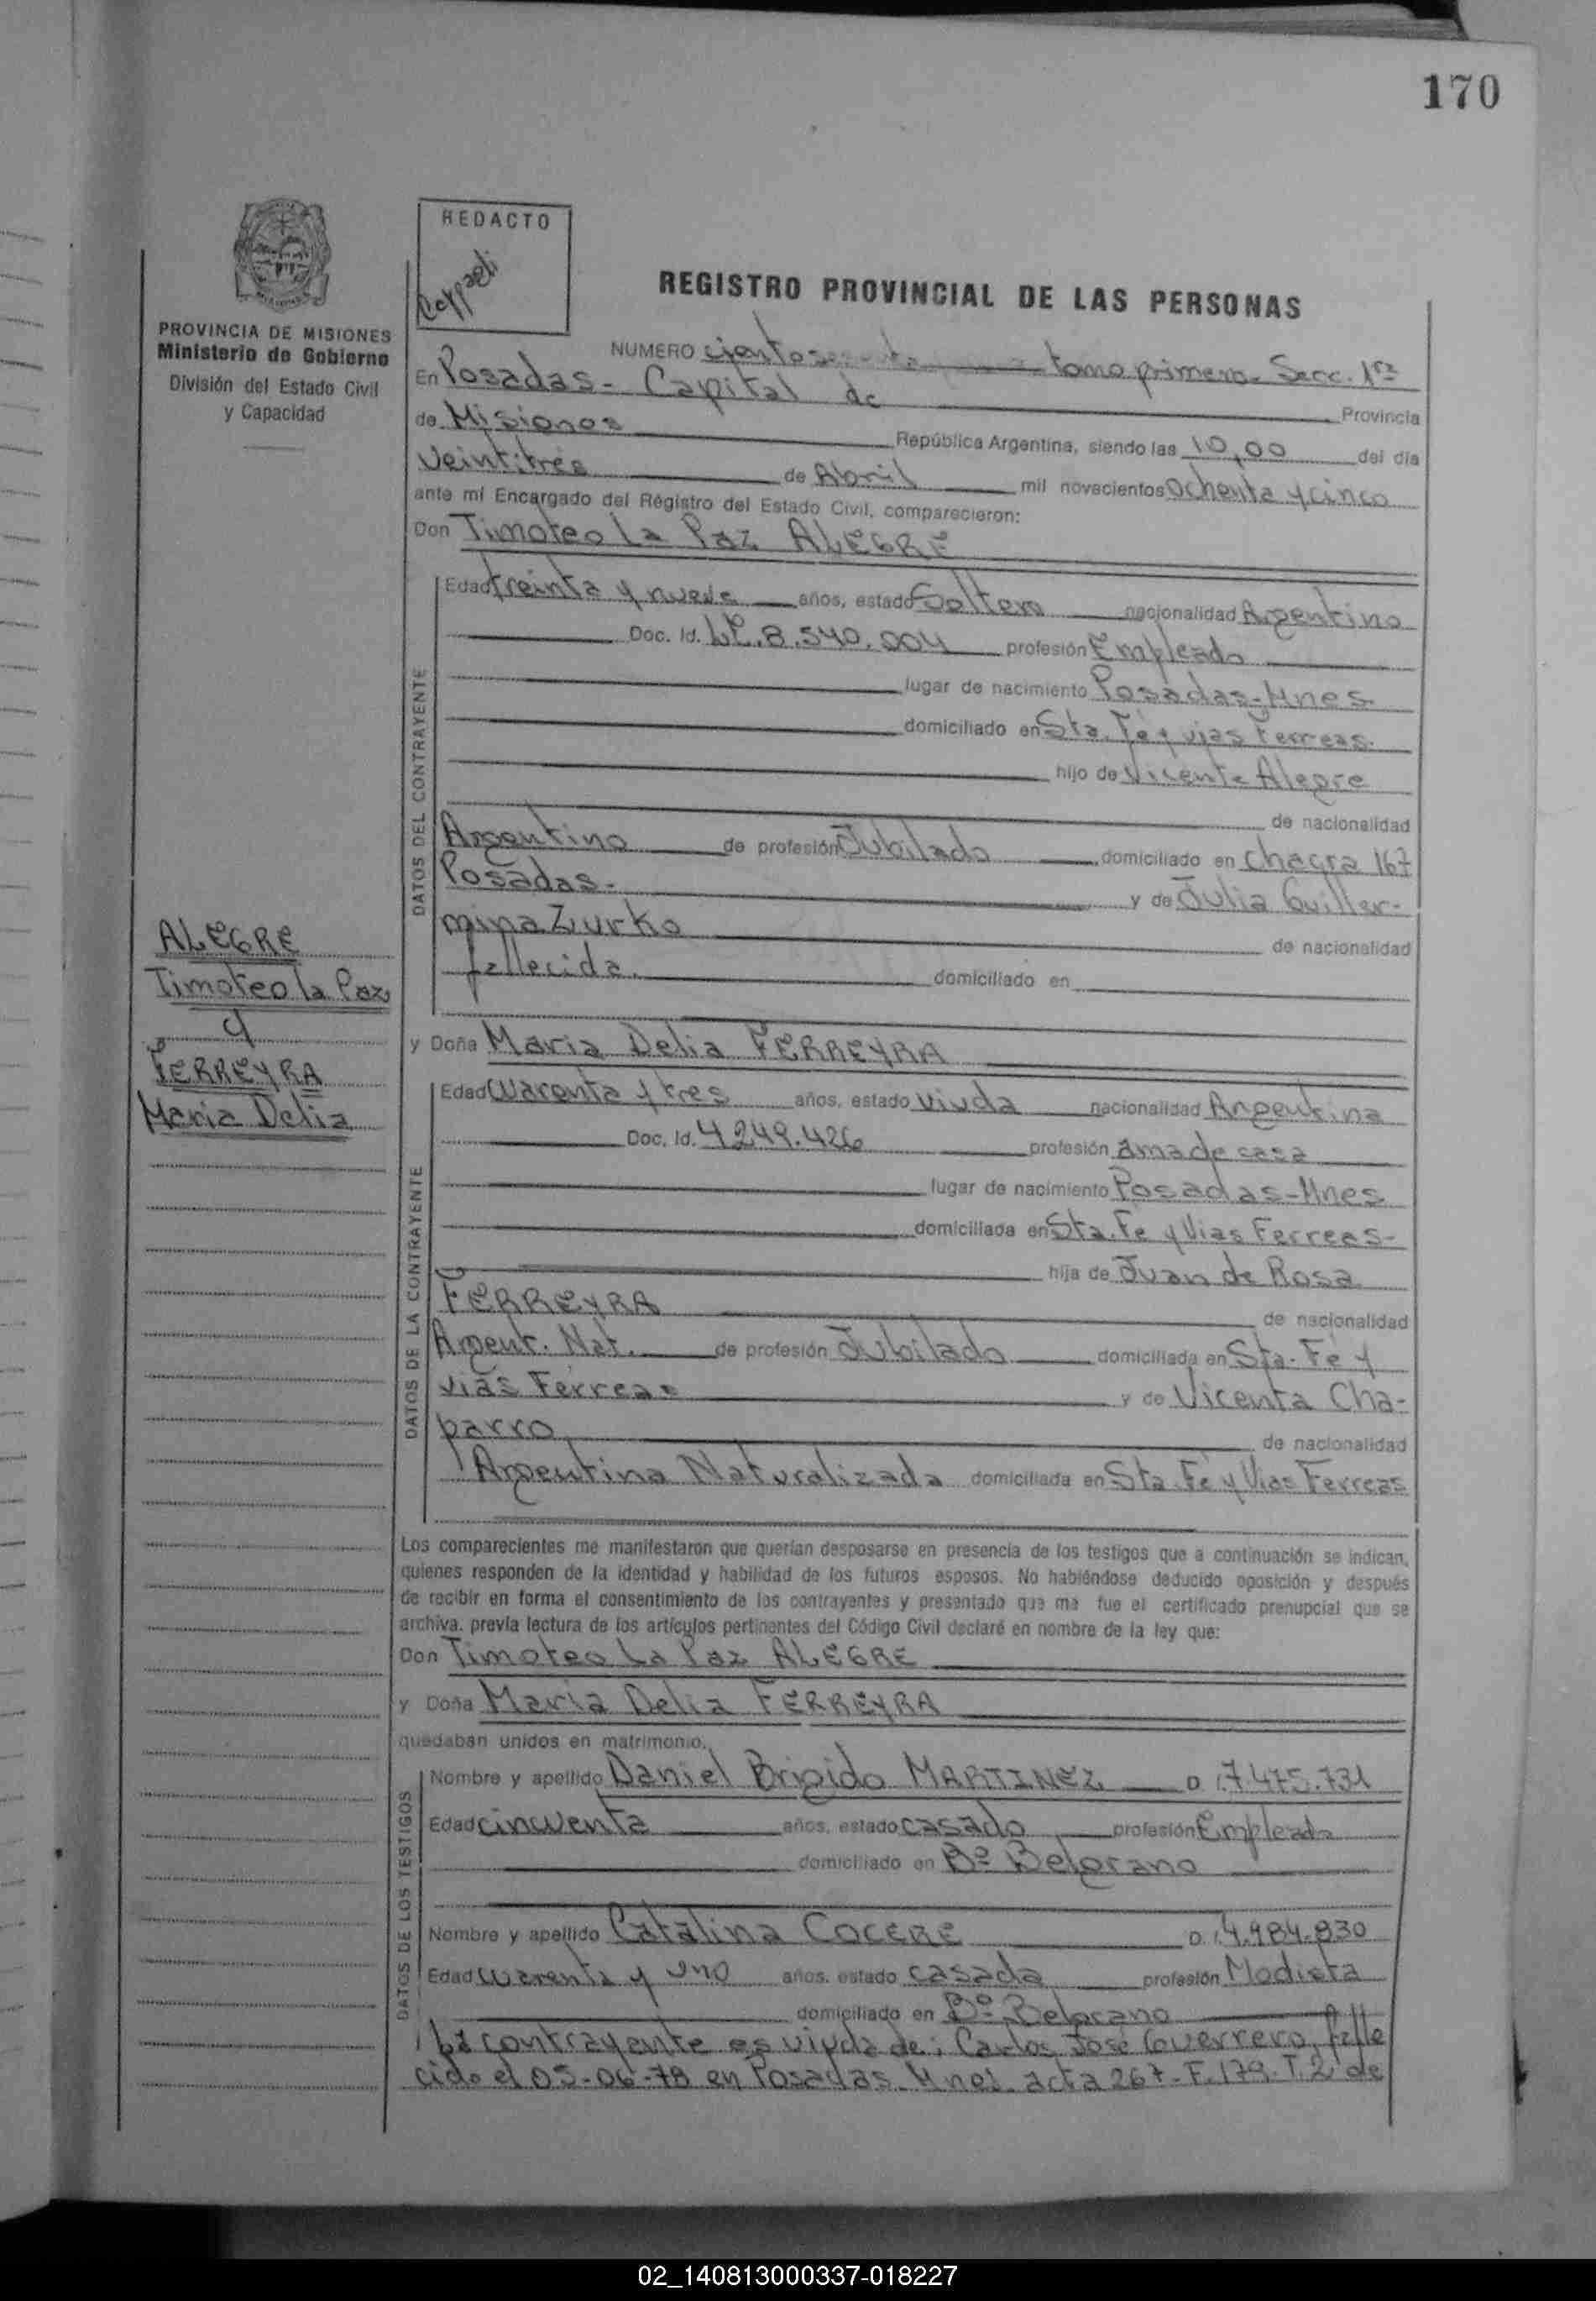 170
REDACTO
REGISTRO PROVINCIAL DE LAS PERSONAS
PROVINCIA DE MISIONES
Ministerio de Gobierno
División del Estado Civil
y Capacidad
NUMERO tomo primero - Secc. 1ra
En Posadas - Capital de Provincia
de Misiones República Argentina, siendo las 10,00 del día
Veintitrés de Abril mil novecientos Ochenta y cinco
ante mí Encargado del Registro del Estado Civil, comparecieron:
Don Timoteo la Paz ALEGRE
DATOS DEL CONTRAYENTE
Edad treinta y nueve años, estado Soltero nacionalidad Argentino
Doc. Id. L.E. 8.540.004 profesión Empleado
lugar de nacimiento Posadas - Mnes
domiciliado en Sta. Fé y vías Ferreas.
hijo de Vicente Alegre
de nacionalidad
Argentino de profesión Jubilado domiciliado en chacra 167
Posadas - y de Julia Guiller-
mina Ziurko de nacionalidad
fallecida. domiciliado en
ALEGRE
Timoteo la Paz
y
FERREYRA
Maria Delia
y Doña Maria Delia FERREYRA
DATOS DE LA CONTRAYENTE
Edad cuarenta y tres años, estado viuda nacionalidad Argentina
Doc. Id. 4.249.426 profesión ama de casa
lugar de nacimiento Posadas - Mnes
domiciliada en Sta. Fe y Vias Ferreas -
hija de Juan de Rosa
FERREYRA de nacionalidad
Argent. Nat. de profesión Jubilado domiciliada en Sta. Fé y
vías Ferreas y de Vicenta Cha-
parro de nacionalidad
Argentina Naturalizada domiciliada en Sta. Fé y Vias Ferreas
Los comparecientes me manifestaron que querían desposarse en presencia de los testigos que a continuación se indican,
quienes responden de la identidad y habilidad de los futuros esposos. No habiéndose deducido oposición y después
de recibir en forma el consentimiento de los contrayentes y presentado que me fue el certificado prenupcial que se
archiva. previa lectura de los artículos pertinentes del Código Civil declaré en nombre de la ley que:
Don Timoteo La Paz ALEGRE
y Doña Maria Delia FERREYRA
quedaban unidos en matrimonio.
DATOS DE LOS TESTIGOS
Nombre y apellido Daniel Brigido MARTINEZ D.I. 7.475.731
Edad cincuenta años, estado casado profesión Empleado
domiciliado en Bº Belgrano
Nombre y apellido Catalina COCERE D.I. 4.984.830
Edad cuarenta y uno años, estado casada profesión Modista
domiciliado en Bº Belgrano
La contrayente es viuda de: Carlos José Guerrero, falle
cido el 05-06-78 en Posadas Mnes. acta 267 - F. 179. T. 2º de
02_140813000337-018227